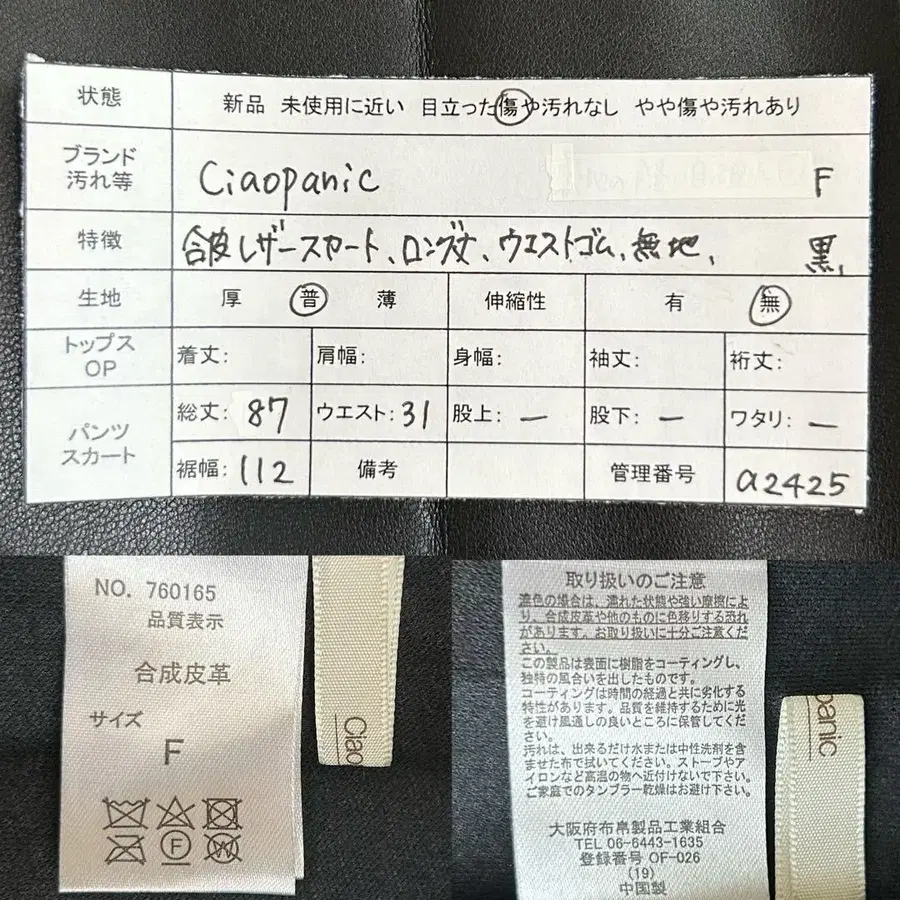 状態 新品 未使用に近い 目立った傷や汚れなし やや傷や汚れあり
ブランド
汚れ等
Ciaopanic F
特徴 合皮レザースカート、ロング丈、ウエストゴム、無地、 黒、
生地 厚 普 薄 伸縮性 有 無
トップス
OP
着丈: 肩幅: 身幅: 袖丈: 裄丈:
パンツ
スカート
総丈: 87 ウエスト: 31 股上: — 股下: — ワタリ: —
裾幅: 112 備考 管理番号 a2425
NO. 760165
品質表示
合成皮革
サイズ
F
F
W
Ciao
取り扱いのご注意
濃色の場合は、濡れた状態や強い摩擦によ
り、合成皮革や他のものに色移りする恐れ
があります。お取り扱いに十分ご注意くだ
さい。
この製品は表面に樹脂をコーティングし、
独特の風合いを出したものです。
コーティングは時間の経過と共に劣化する
特性があります。品質を維持するために光
を避け風通しの良いところに保管してくだ
さい。
汚れは、出来るだけ水または中性洗剤を含
ませた布で拭いてください。ストーブやア
イロンなど高温の物へ近付けないで下さい。
ご家庭でのタンブラー乾燥はお避け下さい。
大阪府布帛製品工業組合
TEL 06-6443-1635
登録番号 OF-026
(19)
中国製
panic